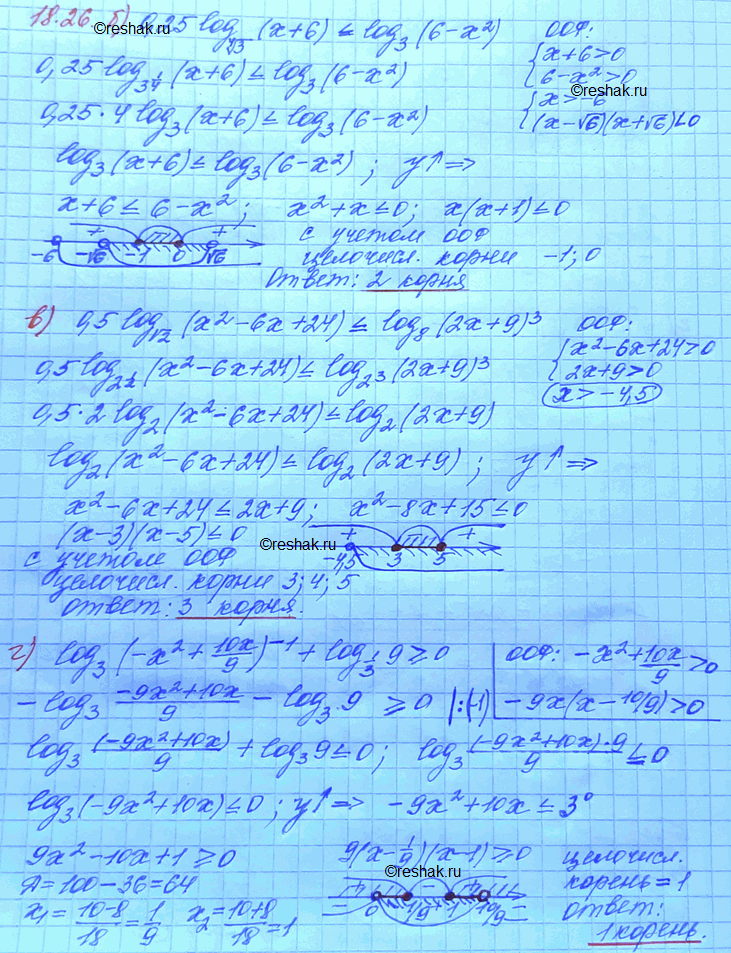 18.26. б) 0,25 log_∜3 (x+6) ≤ log₃ (6-x²)
ООФ:
{ x+6>0
6-x²>0
0,25 log_3^¼ (x+6) ≤ log₃ (6-x²)
©reshak.ru
{ x>-6
(x-√6)(x+√6)<0
0,25·4 log₃ (x+6) ≤ log₃ (6-x²)
log₃ (x+6) ≤ log₃ (6-x²) ; y↑ ⇒
x+6 ≤ 6-x² ; x²+x ≤ 0; x(x+1) ≤ 0
+ − +
-6 -√6 -1 0 √6
с учетом ООФ
целочисл. корни -1; 0
Ответ: 2 корня
в) 0,5 log_√2 (x²-6x+24) ≤ log₈ (2x+9)³
ООФ:
{ x²-6x+24>0
2x+9>0
x>-4,5
0,5 log_2^½ (x²-6x+24) ≤ log_2³ (2x+9)³
0,5·2 log₂ (x²-6x+24) ≤ log₂ (2x+9)
log₂ (x²-6x+24) ≤ log₂ (2x+9) ; y↑ ⇒
x²-6x+24 ≤ 2x+9; x²-8x+15 ≤ 0
(x-3)(x-5) ≤ 0
©reshak.ru
+ − +
-4,5 3 5
с учетом ООФ
целочисл. корни 3; 4; 5
Ответ: 3 корня.
г) log₃ (-x² + 10x/9)⁻¹ + log_⅓ 9 ≥ 0
ООФ: -x² + 10x/9 > 0
-9x(x-10/9) > 0
-log₃ (-9x²+10x)/9 - log₃ 9 ≥ 0 |:(-1)
log₃ (-9x²+10x)/9 + log₃ 9 ≤ 0; log₃ (-9x²+10x)·9/9 ≤ 0
log₃ (-9x²+10x) ≤ 0 ; y↑ ⇒ -9x²+10x ≤ 3⁰
9x²-10x+1 ≥ 0
9(x-1/9)(x-1) ≥ 0
©reshak.ru
Д=100-36=64
x₁ = (10-8)/18 = 1/9 x₂ = (10+8)/18 = 1
0 1/9 1 10/9
целочисл.
корень = 1
Ответ:
1 корень.